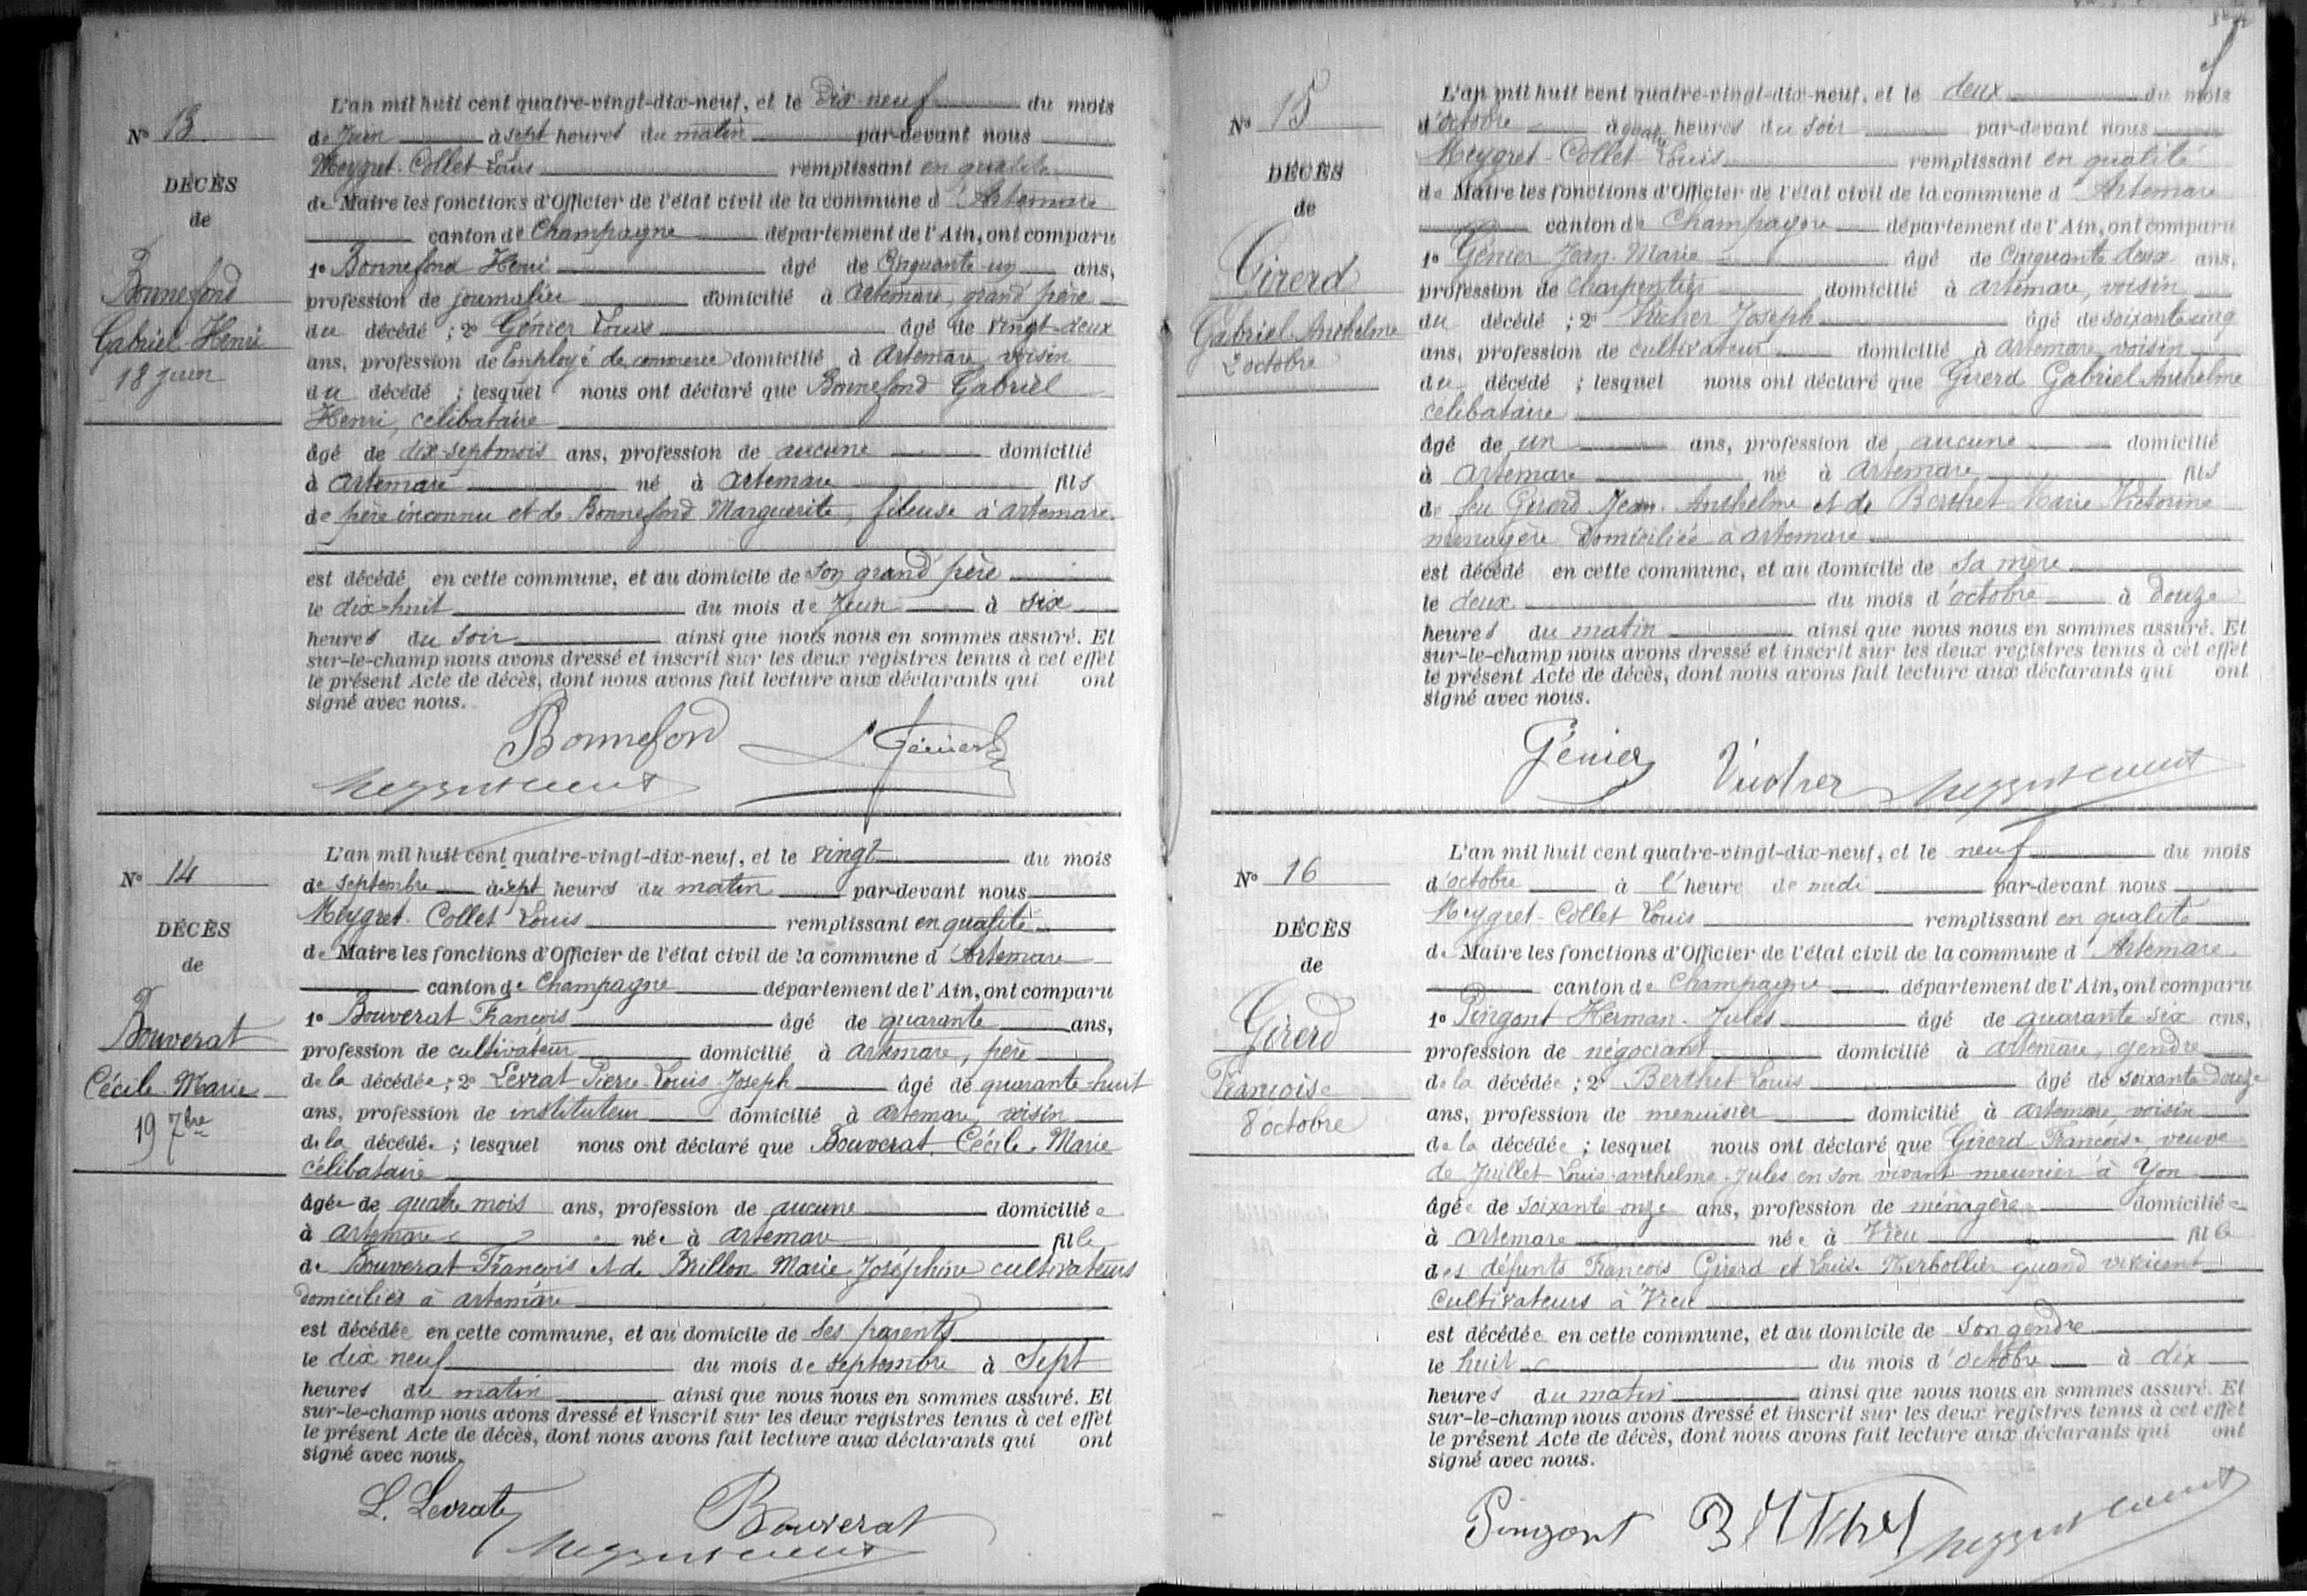 N° 13
DÉCÈS
de
Bonnefond
Gabriel-Henri
18 juin
L'an mil huit cent quatre-vingt-dix-neuf, et le dix-neuf du mois
de Juin à sept heures du matin par-devant nous
Meygret-Collet Louis remplissant en qualité
de Maire les fonctions d'Officier de l'état civil de la commune d'Artemare
canton de Champagne département de l'Ain, ont comparu
1° Bonnefond Henri âgé de Cinquante-un ans,
profession de journalier domicilié à artemare, grand père
du décédé ; 2° Génier Louis âgé de vingt-deux
ans, profession de Employé de commerce domicilié à Artemare voisin
du décédé ; lesquel nous ont déclaré que Bonnefond Gabriel
Henri, célibataire
âgé de dix-sept mois ans, profession de aucune domicilié
à artemare né à artemare fils
de père inconnu et de Bonnefond Marguerite, fileuse à artemare.
est décédé en cette commune, et au domicile de son grand père
le dix-huit du mois de Juin à six
heures du soir ainsi que nous nous en sommes assuré. Et
sur-le-champ nous avons dressé et inscrit sur les deux registres tenus à cet effet
le présent Acte de décès, dont nous avons fait lecture aux déclarants qui ont
signé avec nous.
Bonnefond L. Génier
N° 14
DÉCÈS
de
Bouverat
Cécile-Marie
19 7bre
L'an mil huit cent quatre-vingt-dix-neuf, et le vingt du mois
de septembre à sept heures du matin par-devant nous
Meygret-Collet Louis remplissant en qualité
de Maire les fonctions d'Officier de l'état civil de la commune d'Artemare
canton de Champagne département de l'Ain, ont comparu
1° Bouverat François âgé de quarante ans,
profession de cultivateur domicilié à artemare, père
de la décédée ; 2° Levrat Pierre-Louis-Joseph âgé de quarante-huit
ans, profession de instituteur domicilié à artemare, voisin
de la décédée ; lesquel nous ont déclaré que Bouverat Cécile-Marie
célibataire
âgée de quatre mois ans, profession de aucune domiciliée
à artemare née à artemare fille
de Bouverat François et de Brillon Marie Joséphine cultivateurs
domiciliés à artemare
est décédée en cette commune, et au domicile de ses parents
le dix neuf du mois de septembre à Sept
heures du matin ainsi que nous nous en sommes assuré. Et
sur-le-champ nous avons dressé et inscrit sur les deux registres tenus à cet effet
le présent Acte de décès, dont nous avons fait lecture aux déclarants qui ont
signé avec nous.
L. Levrat Bouverat
N° 15
DÉCÈS
de
Girerd
Gabriel-Anthelme
2 octobre
L'an mil huit cent quatre-vingt-dix-neuf, et le deux du mois
d'octobre à quatre heures du soir par-devant nous
Meygret-Collet Louis remplissant en qualité
de Maire les fonctions d'Officier de l'état civil de la commune d'Artemare
canton de Champagne département de l'Ain, ont comparu
1° Génier Jean-Marie âgé de Cinquante deux ans,
profession de charpentier domicilié à artemare, voisin
du décédé ; 2° Vucher Joseph âgé de soixante cinq
ans, profession de cultivateur domicilié à artemare voisin
du décédé ; lesquel nous ont déclaré que Girerd Gabriel Anthelme
célibataire
âgé de un ans, profession de aucune domicilié
à artemare né à artemare fils
de feu Girerd Jean-Anthelme et de Berthet Marie Victorine
ménagère domiciliée à artemare
est décédé en cette commune, et au domicile de sa mère
le deux du mois d'octobre à Douze
heures du matin ainsi que nous nous en sommes assuré. Et
sur-le-champ nous avons dressé et inscrit sur les deux registres tenus à cet effet
le présent Acte de décès, dont nous avons fait lecture aux déclarants qui ont
signé avec nous.
Génier Vucher
N° 16
DÉCÈS
de
Girerd
Françoise
8 octobre
L'an mil huit cent quatre-vingt-dix-neuf, et le neuf du mois
d'octobre à l'heure de midi par-devant nous
Meygret-Collet Louis remplissant en qualité
de Maire les fonctions d'Officier de l'état civil de la commune d'Artemare
canton de Champagne département de l'Ain, ont comparu
1° Pingont Herman-Jules âgé de quarante six ans,
profession de négociant domicilié à artemare, gendre
de la décédée ; 2° Berthet Louis âgé de soixante-douze
ans, profession de menuisier domicilié à artemare, voisin
de la décédée ; lesquel nous ont déclaré que Girerd Françoise veuve
de Juillet Louis-anthelme-Jules en son vivant meunier à Yon
âgée de soixante-onze ans, profession de ménagère domiciliée
à artemare née à Vieu fille
des défunts François Girerd et Louise Merbollier quand vivaient
cultivateurs à Vieu
est décédée en cette commune, et au domicile de son gendre
le huit du mois d'octobre à dix
heures du matin ainsi que nous nous en sommes assuré. Et
sur-le-champ nous avons dressé et inscrit sur les deux registres tenus à cet effet
le présent Acte de décès, dont nous avons fait lecture aux déclarants qui ont
signé avec nous.
Pingont